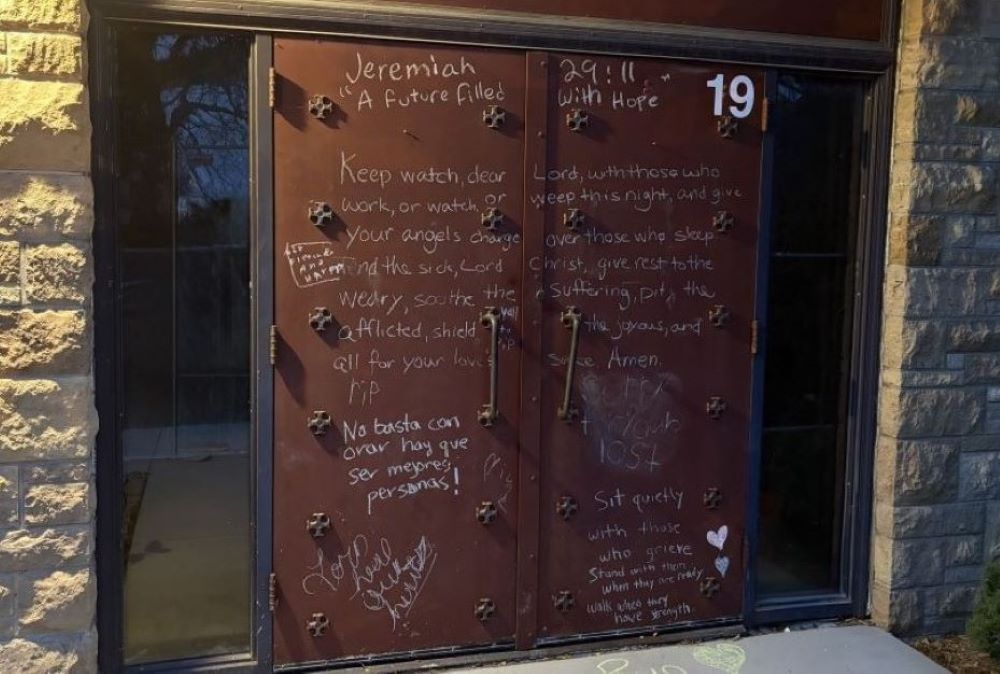 Jeremiah 29:11
"A Future Filled With Hope"
19
Keep watch, dear Lord, with those who
work, or watch, or weep this night, and give
your angels charge over those who sleep.
the sick, Lord Christ, give rest to the
weary, soothe the suffering, pity the
afflicted, shield the joyous, and
all for your love's sake. Amen.
RIP
No basta con
orar hay que
ser mejores
personas!
lost
Lord
Heal
our
hurts
Sit quietly
with those
who grieve
Stand with them
when they are ready
walk when they
have strength.